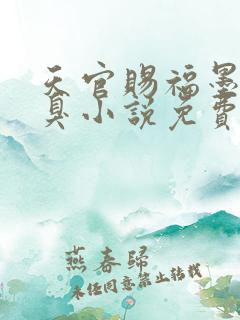 天官赐福墨
真小说免费
燕春归
未经同意禁止转载